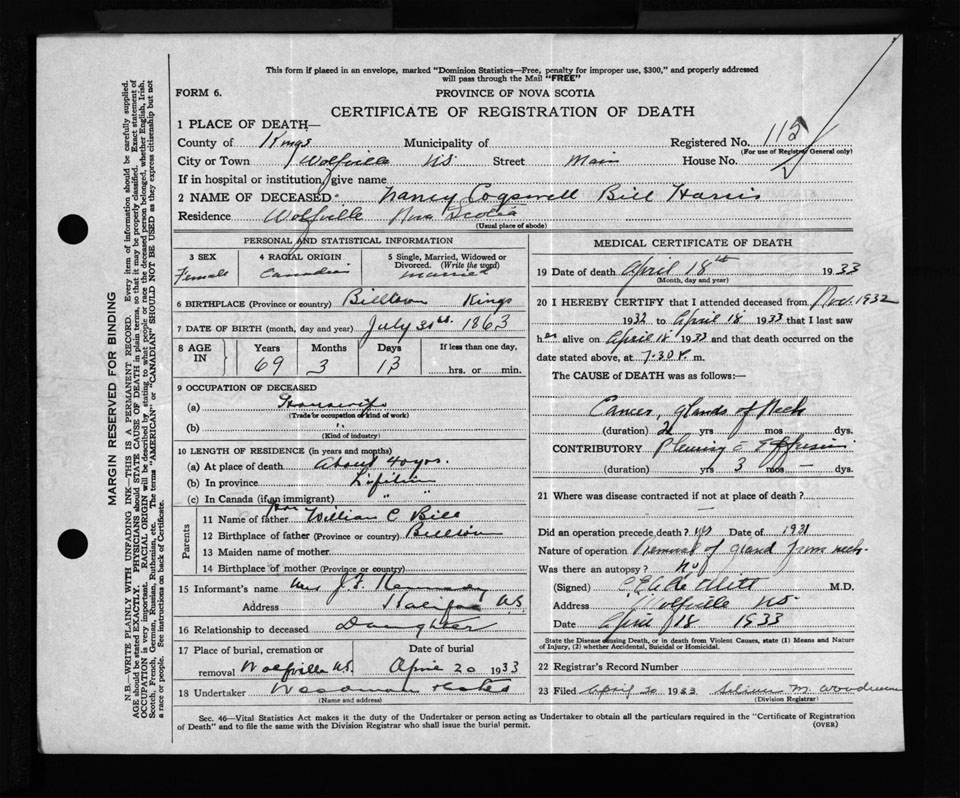 This form if placed in an envelope, marked "Dominion Statistics—Free, penalty for improper use, $300," and properly addressed
will pass through the Mail "FREE"
FORM 6.
PROVINCE OF NOVA SCOTIA
CERTIFICATE OF REGISTRATION OF DEATH
1 PLACE OF DEATH—
County of Kings Municipality of Registered No. 112
(For use of Registrar General only)
City or Town Wolfville NS Street Main House No.
If in hospital or institution, give name
2 NAME OF DECEASED Nancy Cogswell Bill Harris
Residence Wolfville Nova Scotia
(Usual place of abode)
PERSONAL AND STATISTICAL INFORMATION
3 SEX 4 RACIAL ORIGIN 5 Single, Married, Widowed or
Divorced. (Write the word)
Female Canadian Married
6 BIRTHPLACE (Province or country) Billtown Kings
7 DATE OF BIRTH (month, day and year) July 1863
8 AGE IN Years Months Days If less than one day,
69 3 13 hrs. or min.
9 OCCUPATION OF DECEASED
(a) Housewife
(Trade or occupation or kind of work)
(b) "
(Kind of industry)
10 LENGTH OF RESIDENCE (in years and months)
(a) At place of death About 40 yrs.
(b) In province Lifetime
(c) In Canada (if an immigrant) " "
Parents
11 Name of father Hon William C Bill
12 Birthplace of father (Province or country) Billtown
13 Maiden name of mother
14 Birthplace of mother (Province or country)
15 Informant's name Mrs J. F.
Address Halifax NS.
16 Relationship to deceased Daughter
17 Place of burial, cremation or Date of burial
removal Wolfville NS. April 20 1933
18 Undertaker Woodman
(Name and address)
MEDICAL CERTIFICATE OF DEATH
19 Date of death April 18th 1933
(Month, day and year)
20 I HEREBY CERTIFY that I attended deceased from Nov. 1932
1932 to April 18 1933 that I last saw
her alive on April 18 1933 and that death occurred on the
date stated above, at 7.30 m.
The CAUSE of DEATH was as follows:—
Cancer, glands of Neck
(duration) 2 yrs mos dys.
CONTRIBUTORY Pleurisy c Effusion
(duration) yrs 3 mos — dys.
21 Where was disease contracted if not at place of death?
—
Did an operation precede death? yes Date of 1931
Nature of operation Removal of gland from neck.
Was there an autopsy? No
(Signed) M.D.
Address Wolfville NS.
Date April 18 1933
State the Disease causing Death, or in death from Violent Causes, state (1) Means and Nature
of Injury, (2) whether Accidental, Suicidal or Homicidal.
22 Registrar's Record Number
23 Filed April 20 1933 M. Woodman
(Division Registrar)
Sec. 46—Vital Statistics Act makes it the duty of the Undertaker or person acting as Undertaker to obtain all the particulars required in the "Certificate of Registration
of Death" and to file the same with the Division Registrar who shall issue the burial permit.
(OVER)
MARGIN RESERVED FOR BINDING
N.B.—WRITE PLAINLY WITH UNFADING INK—THIS IS A PERMANENT RECORD. Every item of information should be carefully supplied.
AGE should be stated EXACTLY. PHYSICIANS should STATE CAUSE OF DEATH in plain terms, so that it may be properly classified. Exact statement of
OCCUPATION is very important. RACIAL ORIGIN will be described by stating to what people or race the deceased person belonged, whether English, Irish,
Scotch, French, German, Russian, Ruthenian, etc. The terms "AMERICAN" or "CANADIAN" SHOULD NOT BE USED as they express citizenship but not
a race or people. See instructions on back of Certificate.